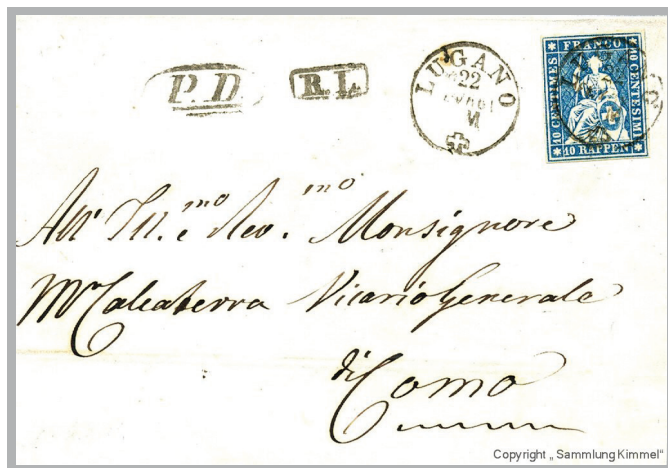 P.D. R.L.
LUGANO
22
VI
FRANCO
10 CENTIMES
10 CENTESIMI
10 RAPPEN
All' Ill.mo e Rev.mo Monsignore
Mr Calcaterra Vicario Generale
di Como
Copyright „ Sammlung Kimmel"